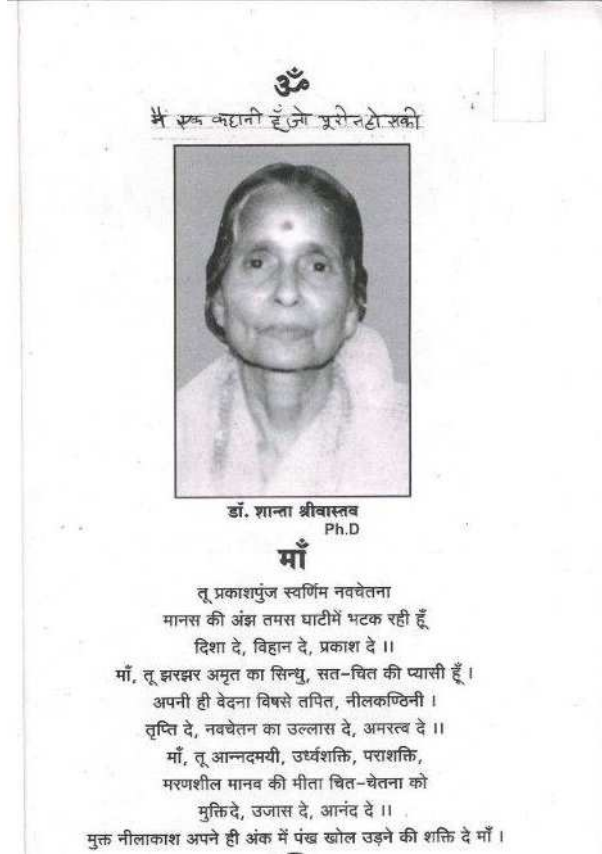 ॐ
मैं एक कहानी हूँ जो पूरी न हो सकी
डॉ. शान्ता श्रीवास्तव
Ph.D
माँ
तू प्रकाशपुंज स्वर्णिम नवचेतना
मानस की अंझ तमस घाटीमें भटक रही हूँ
दिशा दे, विहान दे, प्रकाश दे ।।
माँ, तू झरझर अमृत का सिन्धु, सत-चित की प्यासी हूँ ।
अपनी ही वेदना विषसे तपित, नीलकण्ठिनी ।
तृप्ति दे, नवचेतन का उल्लास दे, अमरत्व दे ।।
माँ, तू आन्नदमयी, उर्ध्वशक्ति, पराशक्ति,
मरणशील मानव की मीता चित-चेतना को
मुक्तिदे, उजास दे, आनंद दे ।।
मुक्त नीलाकाश अपने ही अंक में पंख खोल उड़ने की शक्ति दे माँ ।